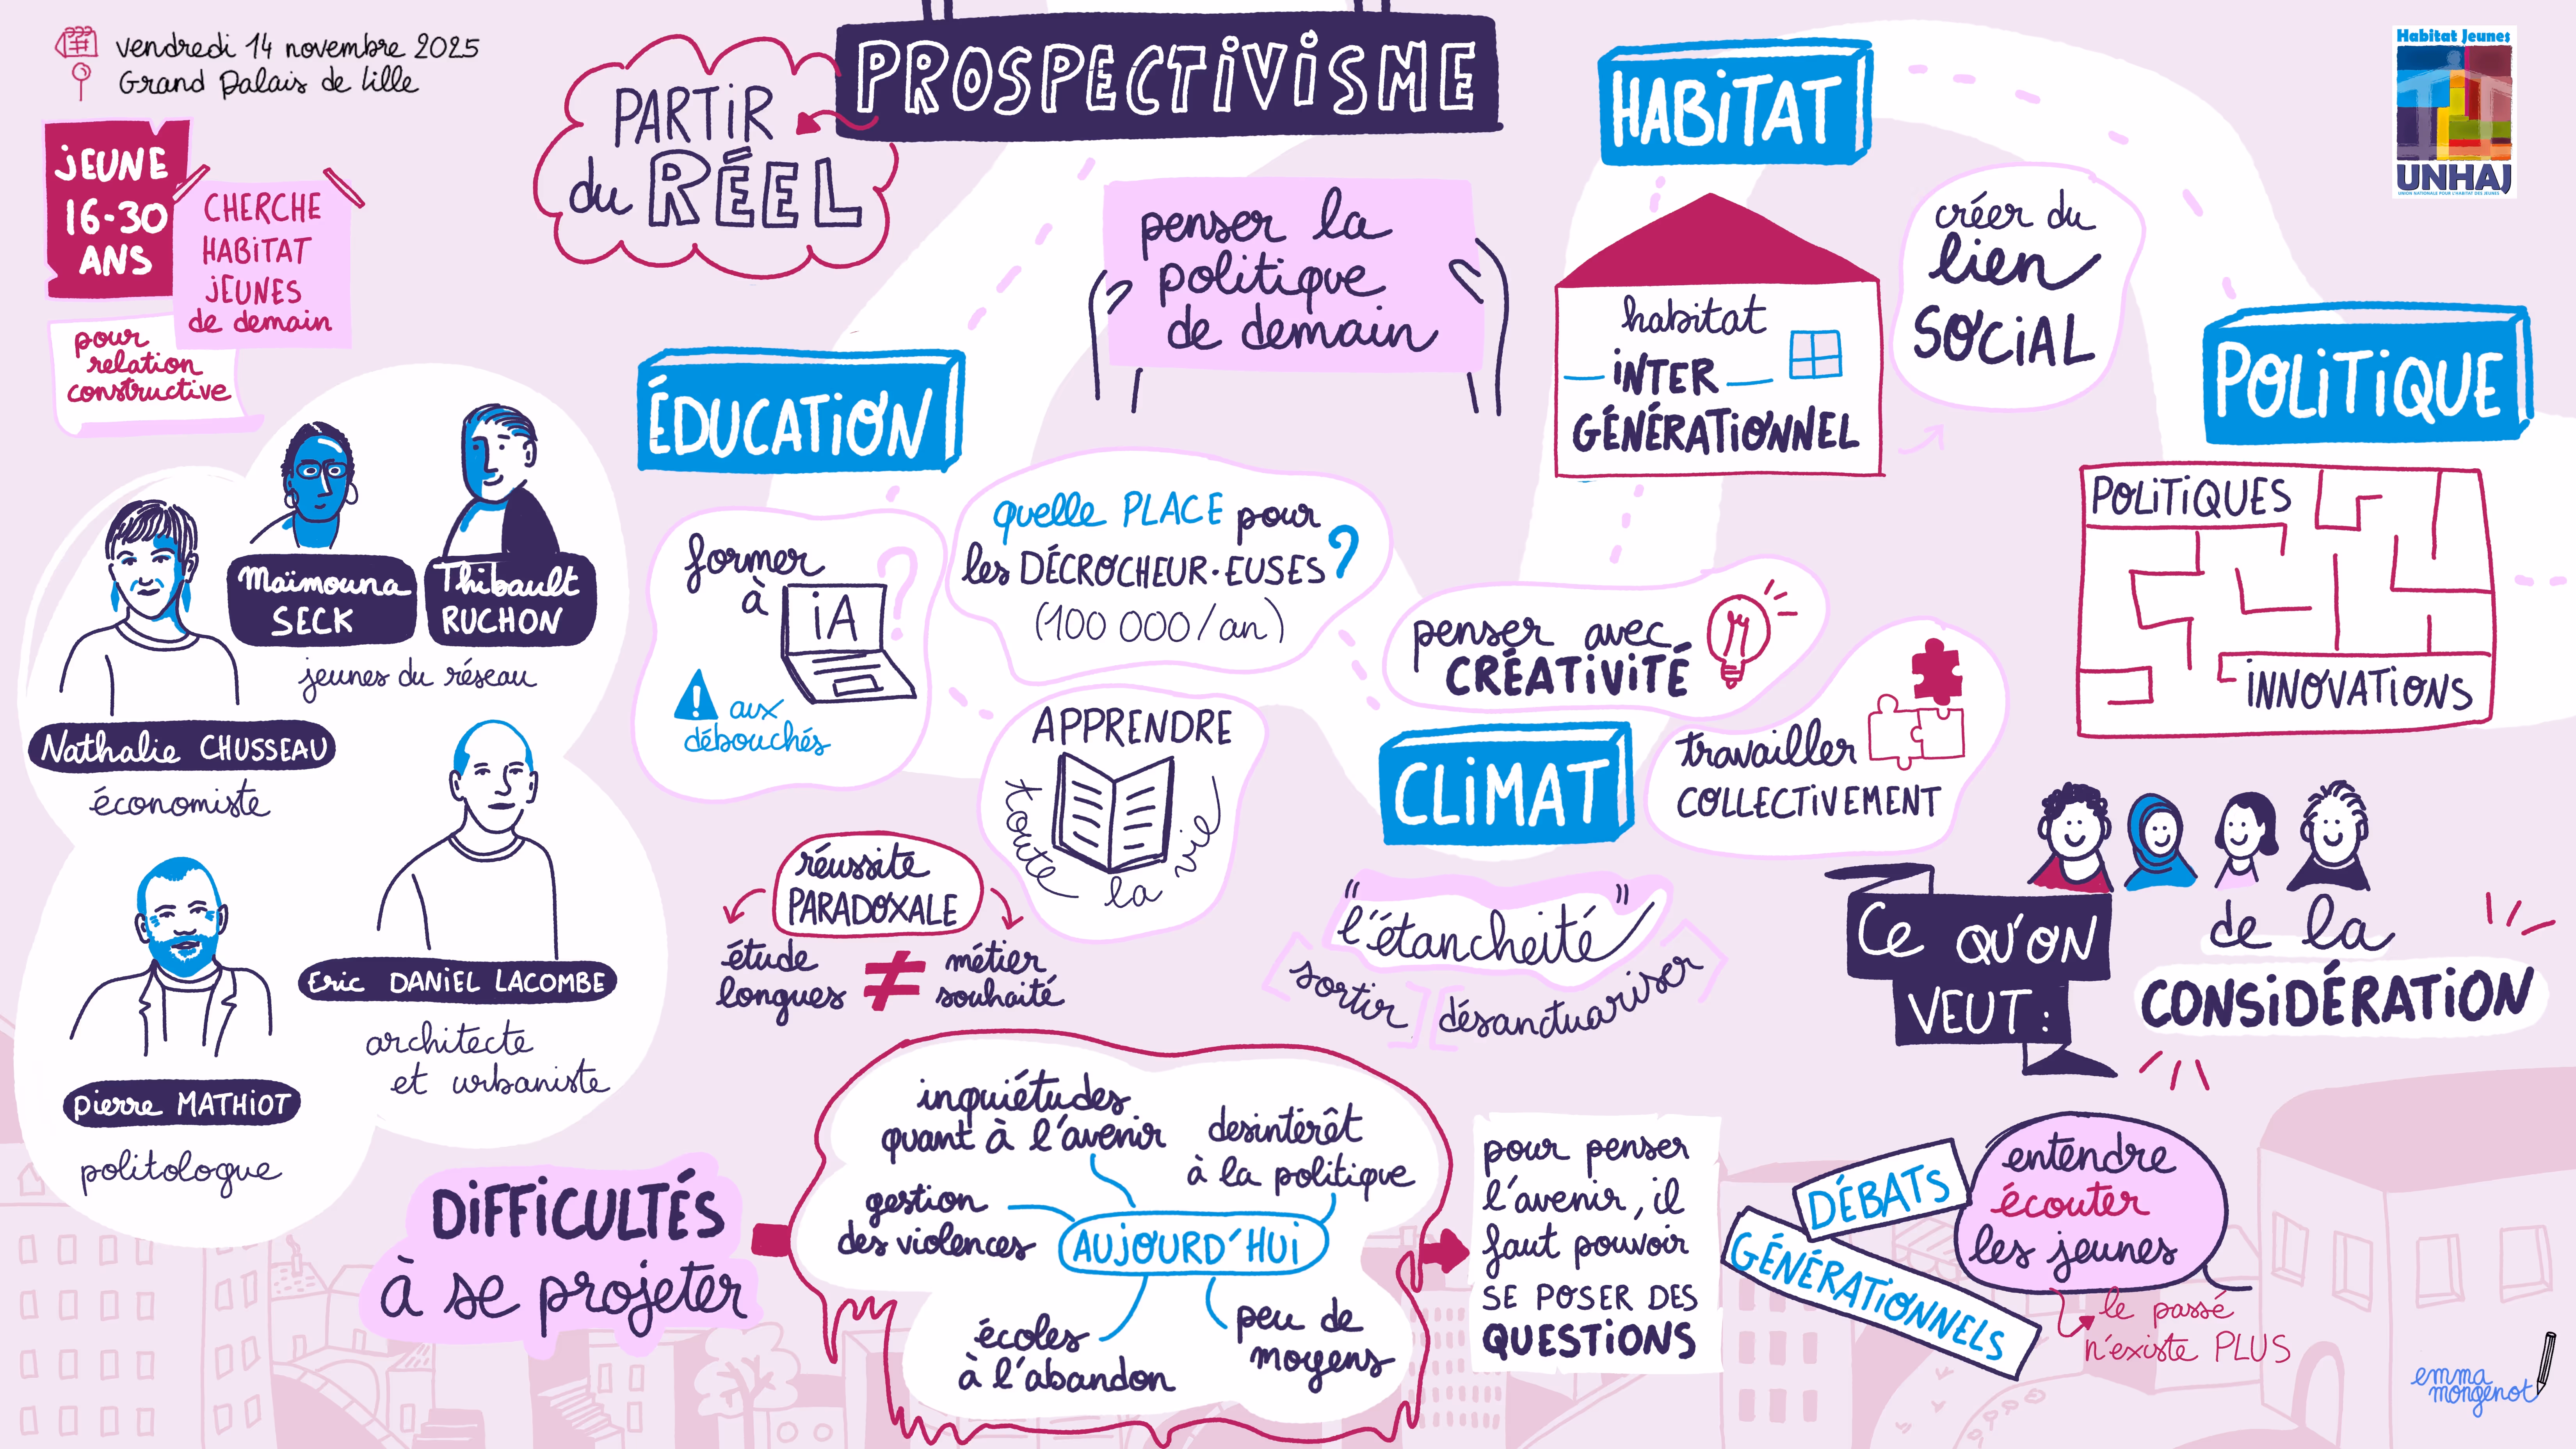 vendredi 14 novembre 2025
Grand Palais de Lille
JEUNE
16-30
ANS
CHERCHE
HABITAT
JEUNES
de demain
pour
relation
constructive
PROSPECTIVISME
PARTIR
du RÉEL
penser la
politique
de demain
Maïmouna
SECK
Thibault
RUCHON
jeunes du réseau
Nathalie CHUSSEAU
économiste
Eric DANIEL LACOMBE
architecte
et urbaniste
Pierre MATHIOT
politologue
ÉDUCATION
former
à
iA
?
! aux
débouchés
quelle PLACE pour
les DÉCROCHEUR·EUSES ?
(100 000/an)
APPRENDRE
toute la vie
réussite
PARADOXALE
étude
longues
≠
métier
souhaité
HABITAT
habitat
INTER
GÉNÉRATIONNEL
créer du
lien
SOCIAL
CLIMAT
penser avec
CRÉATIVITÉ
travailler
COLLECTIVEMENT
"l'étancheité"
[sortir] [désanctuariser]
Habitat Jeunes
UNHAJ
UNION NATIONALE POUR L'HABITAT DES JEUNES
POLITIQUE
POLITIQUES
INNOVATIONS
CE QU'ON
VEUT :
de la
CONSIDÉRATION
DIFFICULTÉS
à se projeter
AUJOURD'HUI
inquiétudes
quant à l'avenir
desintérêt
à la politique
gestion
des violences
écoles
à l'abandon
peu de
moyens
pour penser
l'avenir, il
faut pouvoir
SE POSER DES
QUESTIONS
DÉBATS
GÉNÉRATIONNELS
entendre
écouter
les jeunes
le passé
n'existe PLUS
emma
mongenot